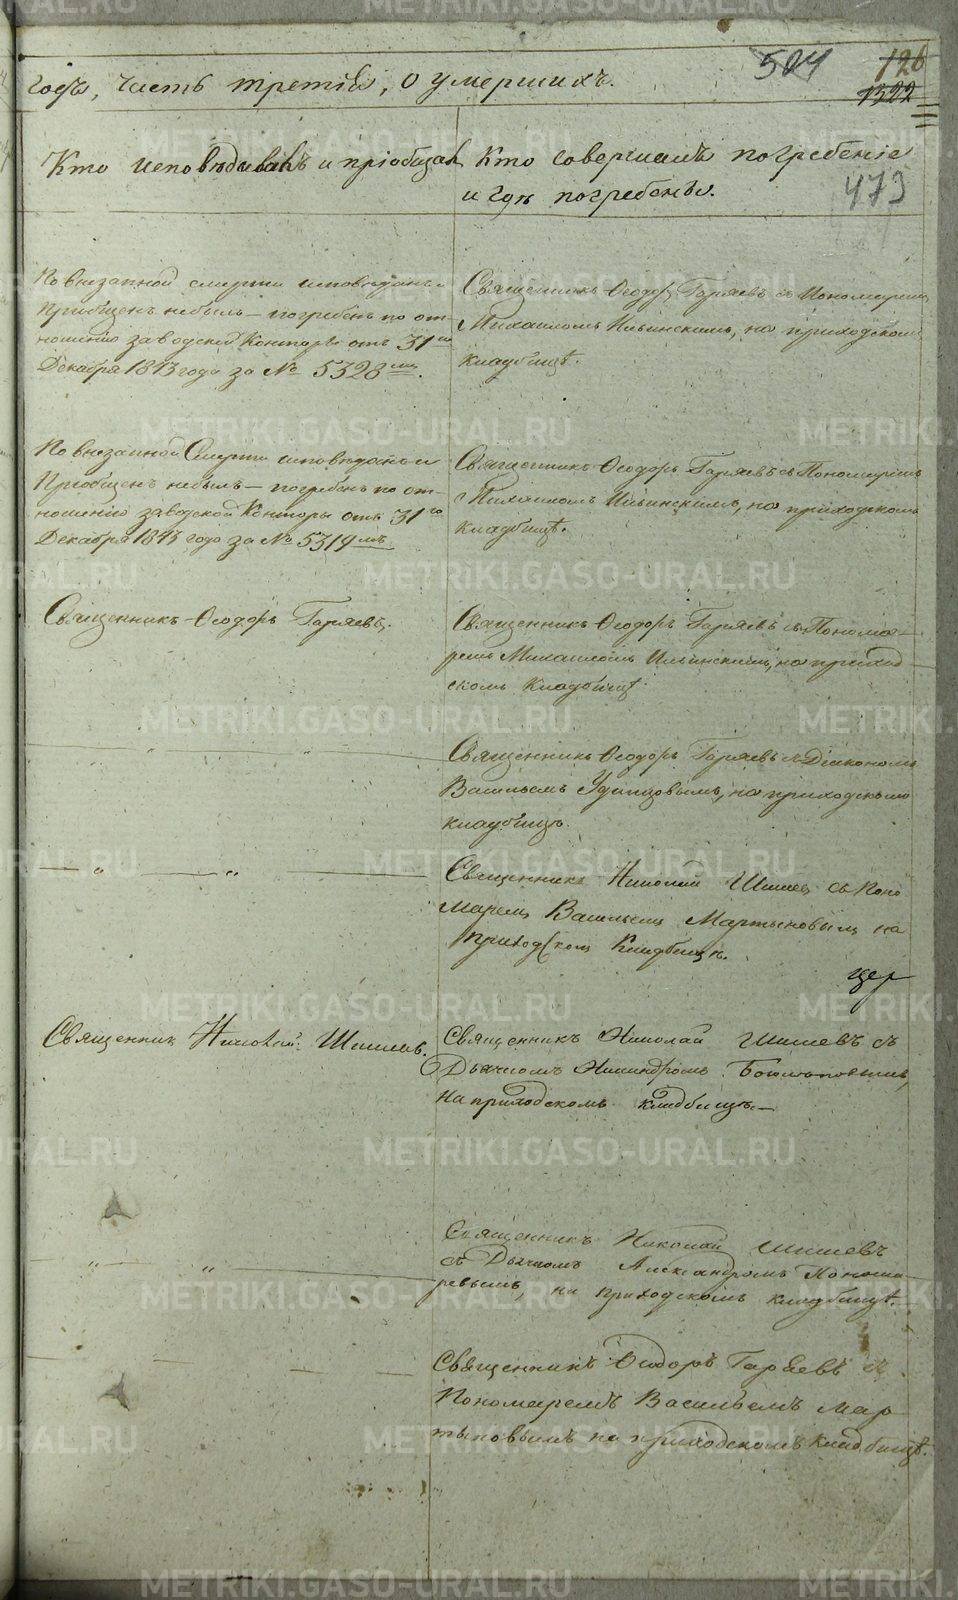 504
126
1322
года, часть третія, о умершихъ.
Кто исповѣдывалъ и пріобщалъ
Кто совершалъ погребеніе
и гдѣ погребены.
473
По внезапной смерти исповѣданъ и
Пріобщенъ небылъ — погребенъ по от-
ношенію заводской Конторы отъ 31го
Декабря 1843 года за № 5328мъ.
Священникъ Ѳеодоръ Гаряевъ съ Пономаремъ
Михаиломъ Ильинскимъ, на приходскомъ
кладбищѣ.
По внезапной Смерти исповѣданъ и
Пріобщенъ небылъ — погребенъ по от-
ношенію заводской Конторы отъ 31го
Декабря 1843 года за № 5319мъ
Священникъ Ѳеодоръ Гаряевъ съ Пономаремъ
Михаиломъ Ильинскимъ, на приходскомъ
кладбищѣ.
Священникъ Ѳеодоръ Гаряевъ.
Священникъ Ѳеодоръ Гаряевъ съ Понома-
ремъ Михаиломъ Ильинскимъ, на приход-
скомъ Кладбищѣ.
— „ — „ —
Священникъ Ѳеодоръ Гаряевъ съ Діакономъ
Васильемъ Удинцовымъ, на приходскомъ
кладбищѣ.
— „ — „ —
Священникъ Николай Шишев съ Поно
марем Васильем Мартыновым на
приходском Кладбищѣ.
цер
Священник Николай Шишевъ.
Священникъ Николай Шишевъ съ
Дьячкомъ Никандромъ
на приходскомъ кладбищѣ.—
— „ — „ —
Священникъ Николай Шишевъ
съ Дьячкомъ Александромъ Понома
ревымъ, на приходскомъ кладбищѣ.
Священникъ Ѳеодоръ Гаряевъ съ
Пономаремъ Васильемъ Мар
тыновымъ на приходскомъ кладбищѣ.
METRIKI.GASO-URAL.RU